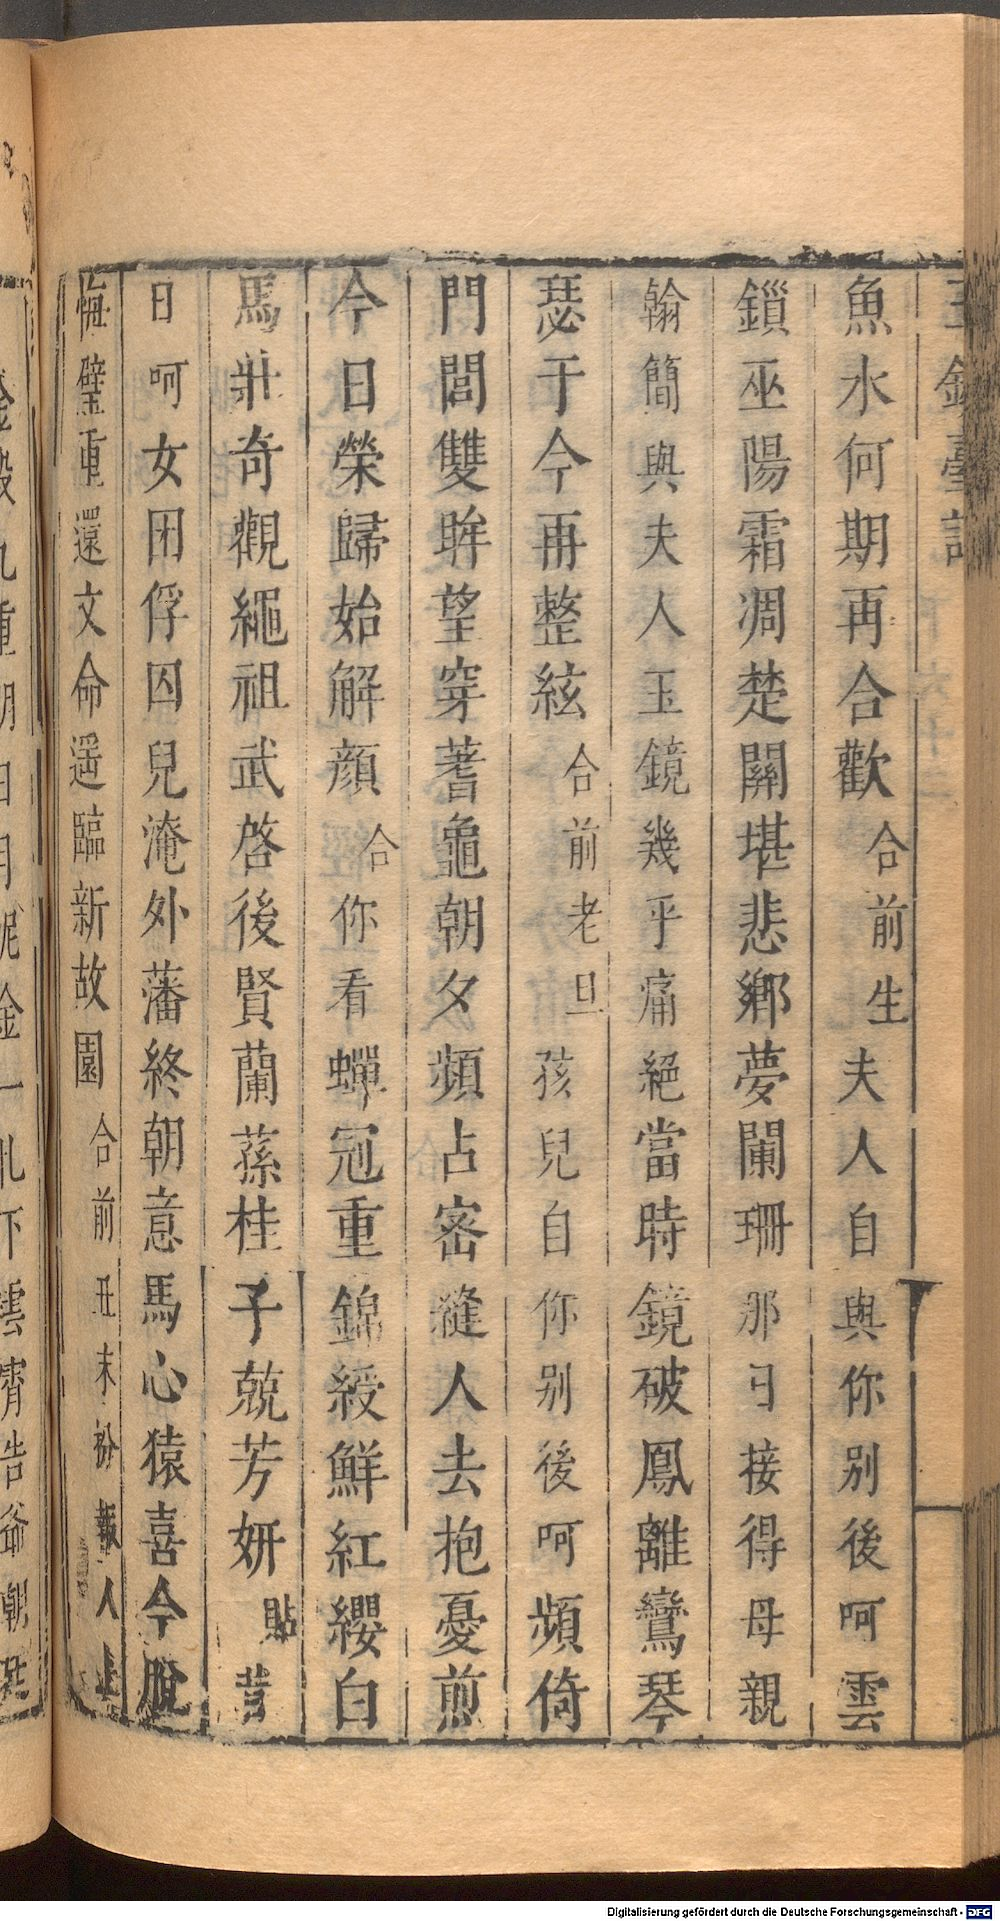 玉鏡臺記
魚水何期再合歡合前生夫人自與你別後呵雲
鎖巫陽霜凋楚關堪悲鄉夢闌珊那日接得母親
翰簡與夫人玉鏡幾乎痛絕當時鏡破鳳離鸞琴
瑟于今再整絃合前老旦孩兒自你別後呵頻倚
門閭雙眸望穿蓍龜朝夕頻占密縫人去抱憂煎
今日榮歸始解顏合你看蟬冠重錦綬鮮紅纓白
馬壯奇觀繩祖武啓後賢蘭蓀桂子兢芳妍貼昔
日呵女困俘囚兒淹外藩終朝意馬心猿喜今脫
悔璧重還文命遥臨新故園合前丑末扮報人上
Digitalisierung gefördert durch die Deutsche Forschungsgemeinschaft - DFG